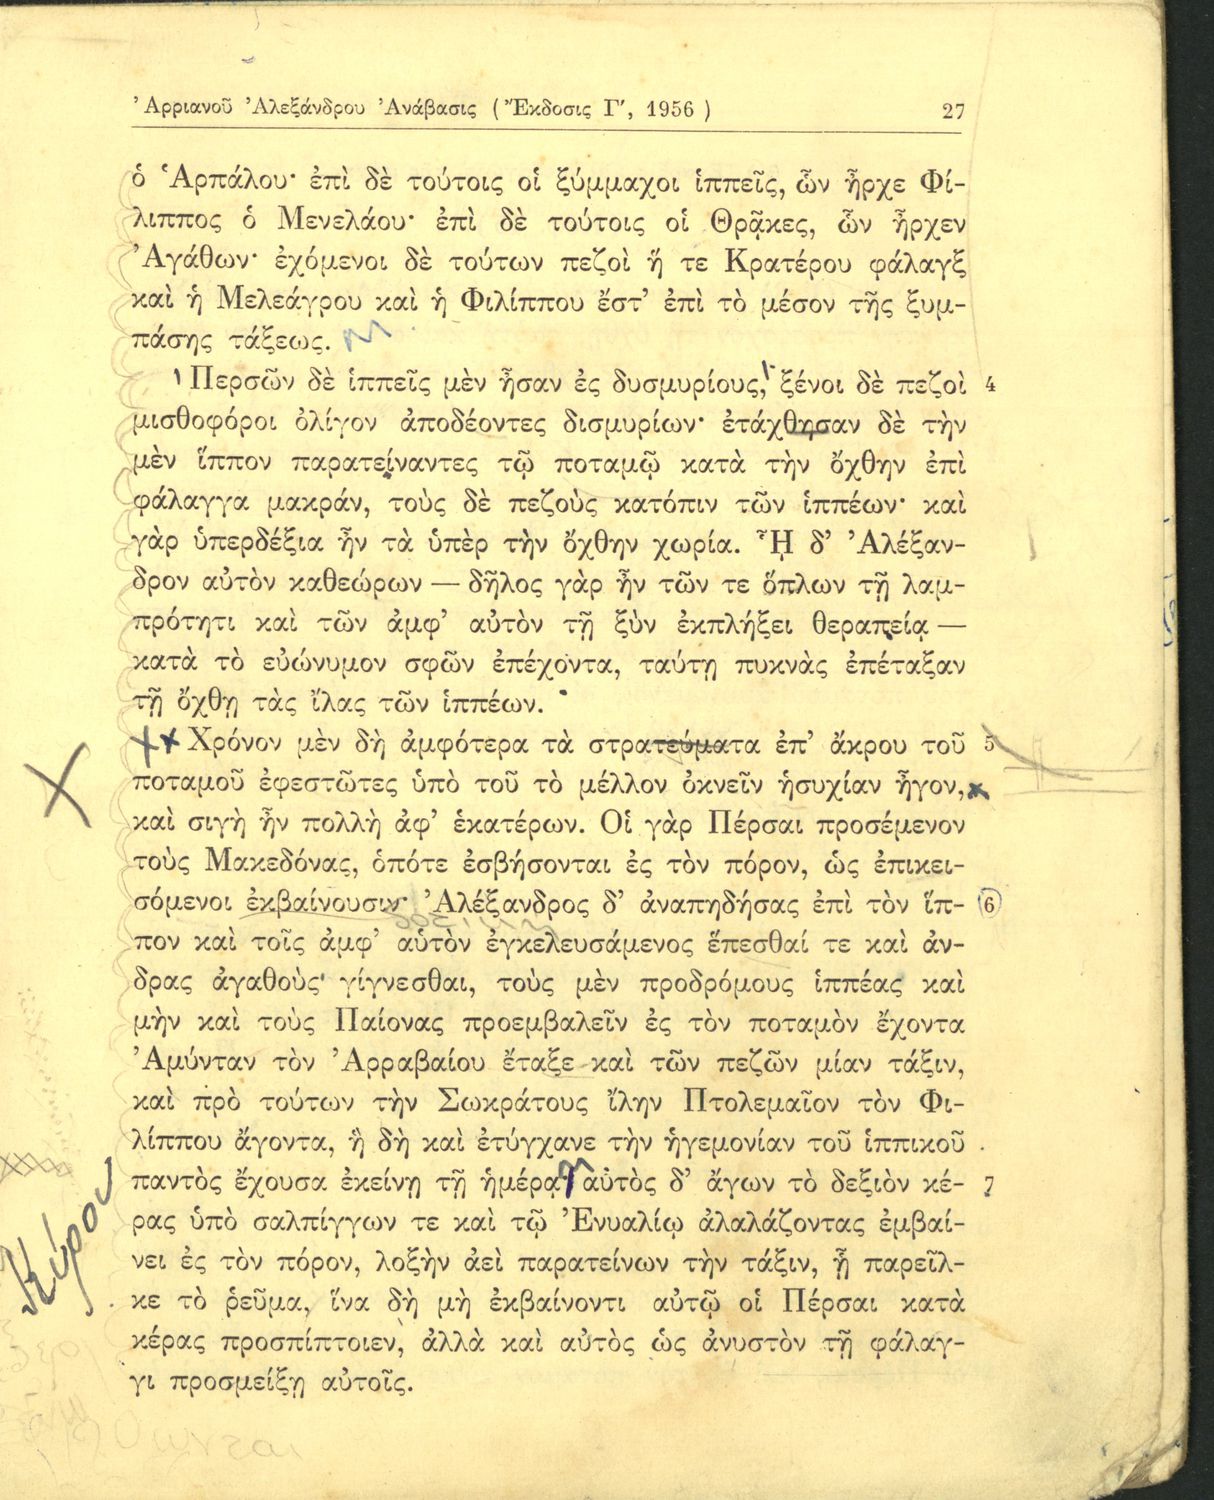 Ἀρριανοῦ Ἀλεξάνδρου Ἀνάβασις (Ἔκδοσις Γ′, 1956) 27
ὁ Ἁρπάλου· ἐπὶ δὲ τούτοις οἱ ξύμμαχοι ἱππεῖς, ὧν ἦρχε Φί-
λιππος ὁ Μενελάου· ἐπὶ δὲ τούτοις οἱ Θρᾷκες, ὧν ἦρχεν
Ἀγάθων· ἐχόμενοι δὲ τούτων πεζοὶ ἥ τε Κρατέρου φάλαγξ
καὶ ἡ Μελεάγρου καὶ ἡ Φιλίππου ἔστ’ ἐπὶ τὸ μέσον τῆς ξυμ-
πάσης τάξεως.
Περσῶν δὲ ἱππεῖς μὲν ἦσαν ἐς δυσμυρίους, ξένοι δὲ πεζοὶ 4
μισθοφόροι ὀλίγον ἀποδέοντες δισμυρίων· ἐτάχθησαν δὲ τὴν
μὲν ἵππον παρατείναντες τῷ ποταμῷ κατὰ τὴν ὄχθην ἐπὶ
φάλαγγα μακράν, τοὺς δὲ πεζοὺς κατόπιν τῶν ἱππέων· καὶ
γὰρ ὑπερδέξια ἦν τὰ ὑπὲρ τὴν ὄχθην χωρία. ᾟ δ’ Ἀλέξαν-
δρον αὐτὸν καθεώρων — δῆλος γὰρ ἦν τῶν τε ὅπλων τῇ λαμ-
πρότητι καὶ τῶν ἀμφ’ αὐτὸν τῇ ξὺν ἐκπλήξει θεραπείᾳ —
κατὰ τὸ εὐώνυμον σφῶν ἐπέχοντα, ταύτῃ πυκνὰς ἐπέταξαν
τῇ ὄχθῃ τὰς ἴλας τῶν ἱππέων.
Χρόνον μὲν δὴ ἀμφότερα τὰ στρατεύματα ἐπ’ ἄκρου τοῦ 5
ποταμοῦ ἐφεστῶτες ὑπὸ τοῦ τὸ μέλλον ὀκνεῖν ἡσυχίαν ἦγον,
καὶ σιγὴ ἦν πολλὴ ἀφ’ ἑκατέρων. Οἱ γὰρ Πέρσαι προσέμενον
τοὺς Μακεδόνας, ὁπότε ἐσβήσονται ἐς τὸν πόρον, ὡς ἐπικει-
σόμενοι ἐκβαίνουσιν· Ἀλέξανδρος δ’ ἀναπηδήσας ἐπὶ τὸν ἵπ- 6
πον καὶ τοῖς ἀμφ’ αὑτὸν ἐγκελευσάμενος ἕπεσθαί τε καὶ ἄν-
δρας ἀγαθοὺς γίγνεσθαι, τοὺς μὲν προδρόμους ἱππέας καὶ
μὴν καὶ τοὺς Παίονας προεμβαλεῖν ἐς τὸν ποταμὸν ἔχοντα
Ἀμύνταν τὸν Ἀρραβαίου ἔταξε καὶ τῶν πεζῶν μίαν τάξιν,
καὶ πρὸ τούτων τὴν Σωκράτους ἴλην Πτολεμαῖον τὸν Φι-
λίππου ἄγοντα, ἣ δὴ καὶ ἐτύγχανε τὴν ἡγεμονίαν τοῦ ἱππικοῦ
παντὸς ἔχουσα ἐκείνῃ τῇ ἡμέρᾳ· αὐτὸς δ’ ἄγων τὸ δεξιὸν κέ- 7
ρας ὑπὸ σαλπίγγων τε καὶ τῷ Ἐνυαλίῳ ἀλαλάζοντας ἐμβαί-
νει ἐς τὸν πόρον, λοξὴν ἀεὶ παρατείνων τὴν τάξιν, ᾗ παρεῖλ-
κε τὸ ῥεῦμα, ἵνα δὴ μὴ ἐκβαίνοντι αὐτῷ οἱ Πέρσαι κατὰ
κέρας προσπίπτοιεν, ἀλλὰ καὶ αὐτὸς ὡς ἀνυστὸν τῇ φάλαγ-
γι προσμείξῃ αὐτοῖς.
Κύρου